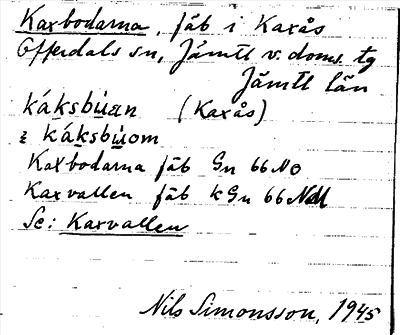 Kaxbodarna, fäb i Kaxås
Offerdals sn, Jämtl v. doms. tg
Jämtl län
káksbu̇an (Kaxås)
ɪ káksbu̇om
Kaxbodarna fäb Gn 66 NO
Kaxvallen fäb k Gn 66 NO
Se: Kaxvallen
Nils Simonsson, 1945